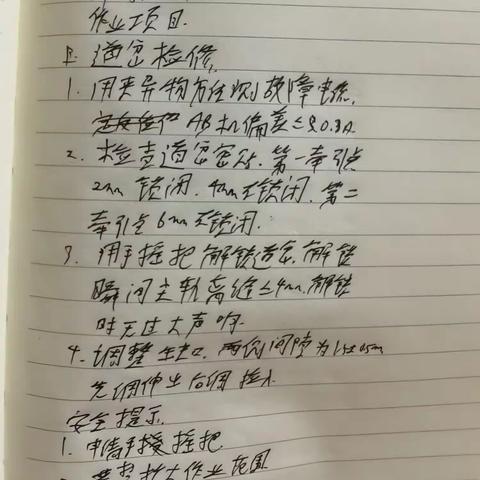 作业项目.
日. 道岔检修.
1. 用夹异物方法测故障电流,
定反位和AB机偏差≤0.3A.
2. 检查道岔密贴. 第一牵引点
2mm锁闭. 4mm不锁闭. 第二
牵引点6mm不锁闭.
3. 用手摇把解锁道岔. 解锁
瞬间尖轨离缝≤4mm. 解锁
时无过大声响.
4. 调整缺口. 两侧间隙为1.5±0.5mm
先调伸出后调拉入
安全提示.
1. 申请手摇把
作业范围